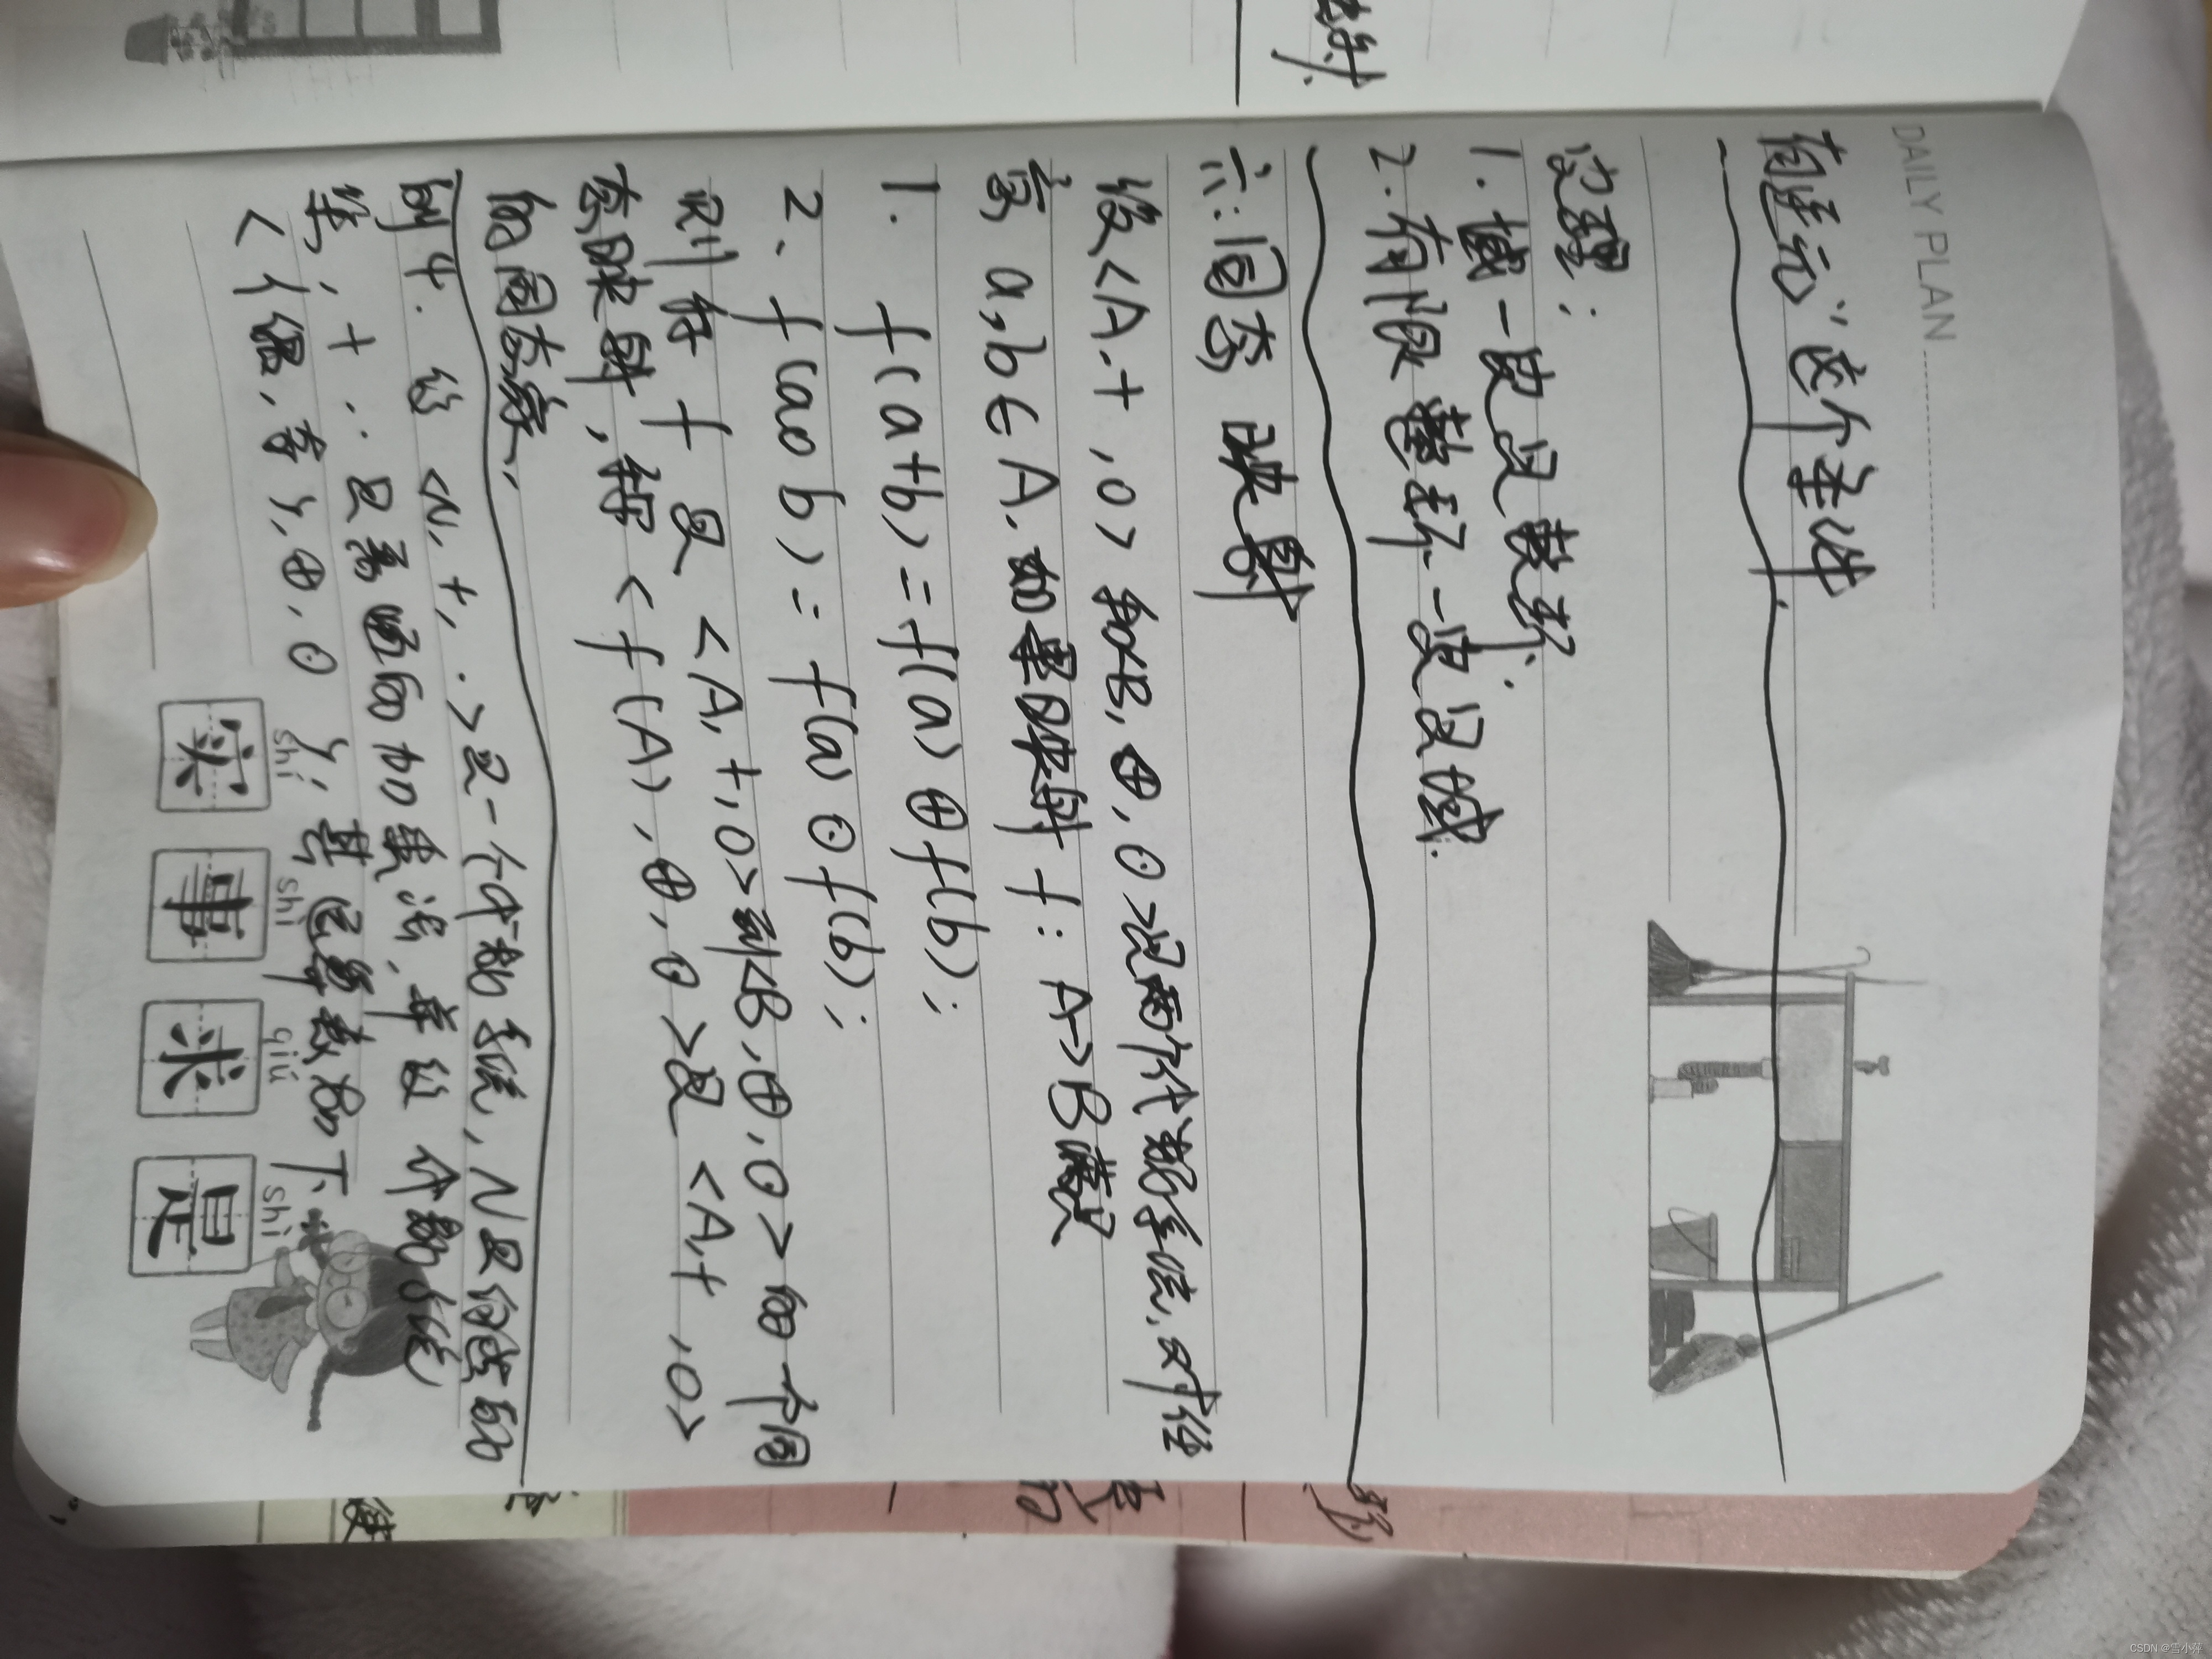 DAILY PLAN
有逆元”这个条件.
定理：
1. 域一定是整环.
2. 有限整环一定是域.
六：同态映射
设<A,+,o>和<B,⊕,⊙>是两个代数系统,对任
意a,b∈A.如果映射f：A→B满足
1. f(a+b)=f(a)⊕f(b);
2. f(aob)=f(a)⊙f(b);
则称f是<A,+,o>到<B,⊕,⊙>的一个同
态映射,称<f(A),⊕,⊙>是<A,+,o>
的同态象.
例4. 设<N,+,·>是一个代数系统,N是自然数的
集,+ ·是普通的加乘法,并设代数系统
<{偶,奇},⊕,⊙>;其运算表如下
shí shì qiú shì
实事求是
射.
CSDN @雪小萍